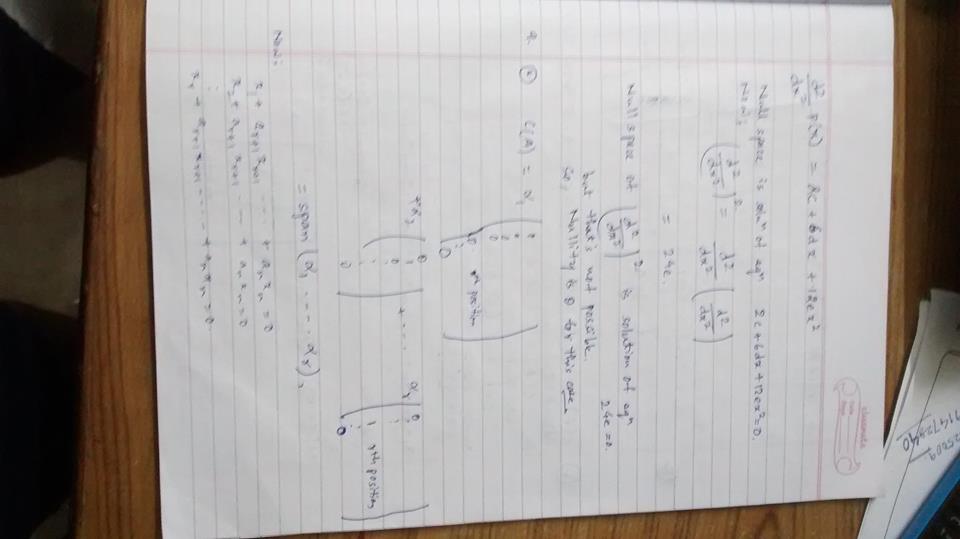 classmate
d²/dx² p(x) = 2c + 6dx + 12ex²
Null space is solnⁿ of eqⁿ 2c + 6dx + 12ex² = 0.
Now:
(d²/dx²)² = d²/dx² (d²/dx²)
= 24e.
Null space of (d²/dx²)² is solution of eqⁿ
24e = 0.
but that's not possible.
So, Nullity is 0 for this case
C(A) = α₁
rth position
+α₂ + .... αr
1 rth position
= span (α₁ ..... αr),
Now:
x₁ + ar+1 xr+1 ..... + an xn = 0
x₂ + ar+1 xr+1 .... + an xn = 0
xr + ar+1 xr+1 ..... + an xn = 0.